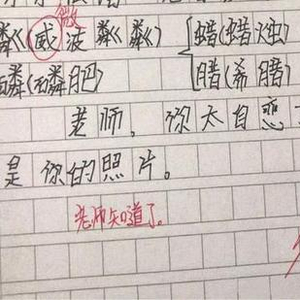 微
粼威波粼粼) {蜡(蜡烛)
磷(磷肥) 腊(希腊)
老师，你太自恋
是你的照片。
老师知道了。